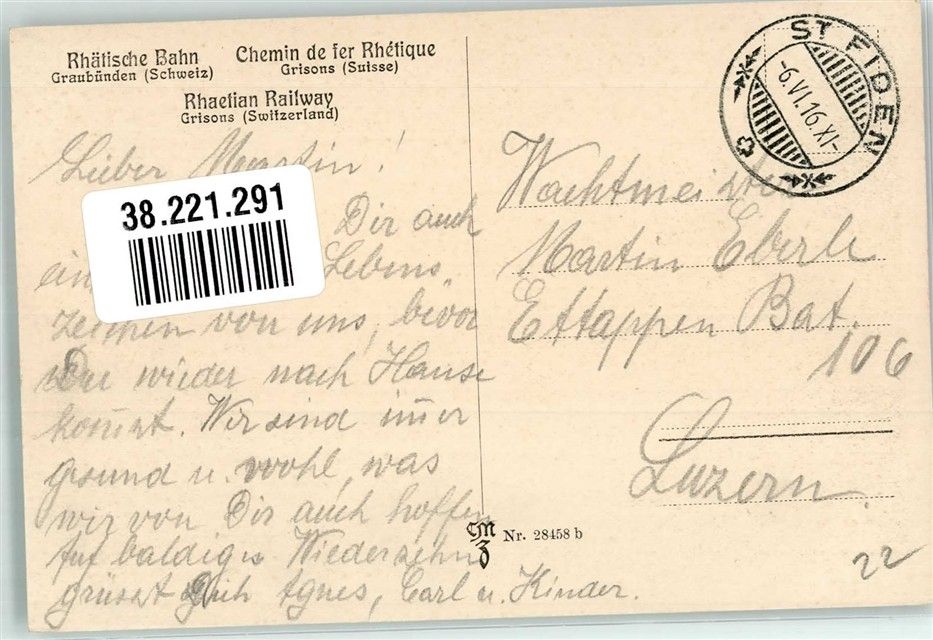 Rhätische Bahn
Graubünden (Schweiz)
Chemin de fer Rhétique
Grisons (Suisse)
Rhaetian Railway
Grisons (Switzerland)
ST FIDEN
-6.VI.16.XI-
38.221.291
Lieber Martin!
Dir auch
ein Lebens-
zeichen von uns, bevor
Du wieder nach Hause
kom̄st. Wir sind im̄er
gesund u. wohl, was
wir von Dir auch hoffen
Auf baldiges Wiedersehn
grüsst Dich Agnes, Carl u. Kinder.
Wachtmeister
Martin Eberle
Ettappen Bat.
106
Luzern
Nr. 28458 b
22